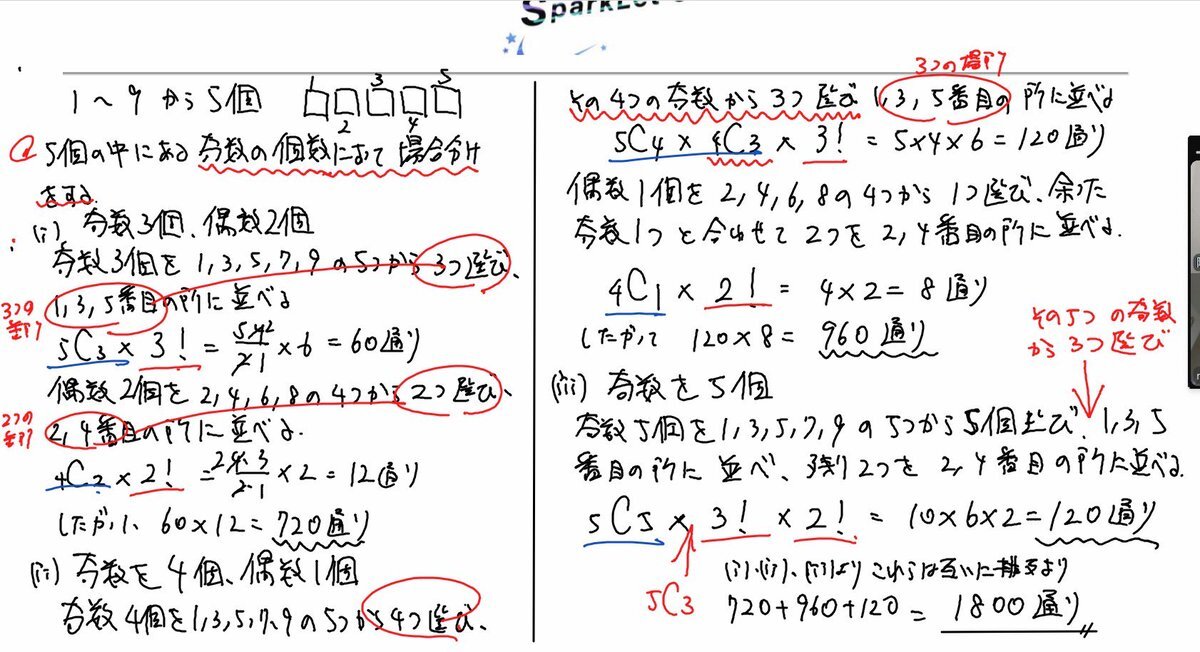 1〜9から5個
1 3 5
2 4
5個の中にある奇数の個数によって場合分け
をする.
(i) 奇数3個、偶数2個
奇数3個を1,3,5,7,9の5つから3つ選び、
3つの
1,3,5番目の所に並べる
5C3 × 3! = 5·4²/2·1 × 6 = 60通り
偶数2個を2,4,6,8の4つから2つ選び、
2つの
2,4番目の所に並べる.
4C2 × 2! = 24·3/2·1 × 2 = 12通り
したがって、60×12=720通り
(ii) 奇数を4個、偶数1個
奇数4個を1,3,5,7,9の5つから4つ選び、
3つの場所
その4つの奇数から3つ選び 1,3,5番目の所に並べる
5C4 × 4C3 × 3! = 5×4×6=120通り
偶数1個を2,4,6,8の4つから1つ選び、余った
奇数1つと合わせて2つを2,4番目の所に並べる.
4C1 × 2! = 4×2=8通り
したがって 120×8=960通り
その5つの奇数
から3つ選び
(iii) 奇数を5個
奇数5個を1,3,5,7,9の5つから5個選び、1,3,5
番目の所に並べ、残り2つを2,4番目の所に並べる.
5C5 × 3! × 2! = 10×6×2=120通り
5C3
(i)、(ii)、(iii)より これらは互いに排反より
720+960+120=1800通り